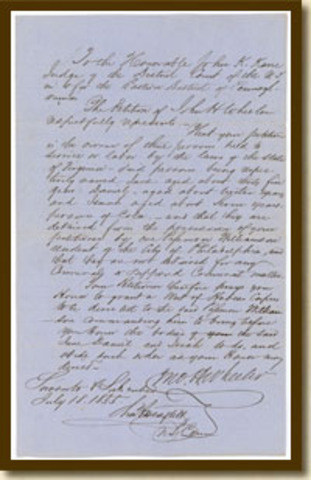 To the Honorable John K. Kane
Judge of the District Court of the U.S.
in & for the Eastern District of Pennsyl-
vania
The Petition of John H Wheeler
respectfully represents
That your petitioner
is the owner of three persons held to
service or labor by the laws of the State
of Virginia said persons being respec-
tively named Jane aged about thirty five
years Daniel aged about twelve years
and Isaiah aged about seven years
persons of Color and that they are
detained from the possession of your
petitioner by one Passmore Williamson
resident of the City of Philadelphia and
that they are not detained for any
Criminal or supposed Criminal matter
Your Petitioner therefore prays your
Honor to grant a Writ of Habeas Corpus
to be directed to the said Passmore William
son commanding him to bring before
your Honor the bodies of the said
Jane Daniel and Isaiah to do and
abide such order as your Honor may
direct
Jno. H Wheeler
Sworn to & Subscribed
July 18 1855